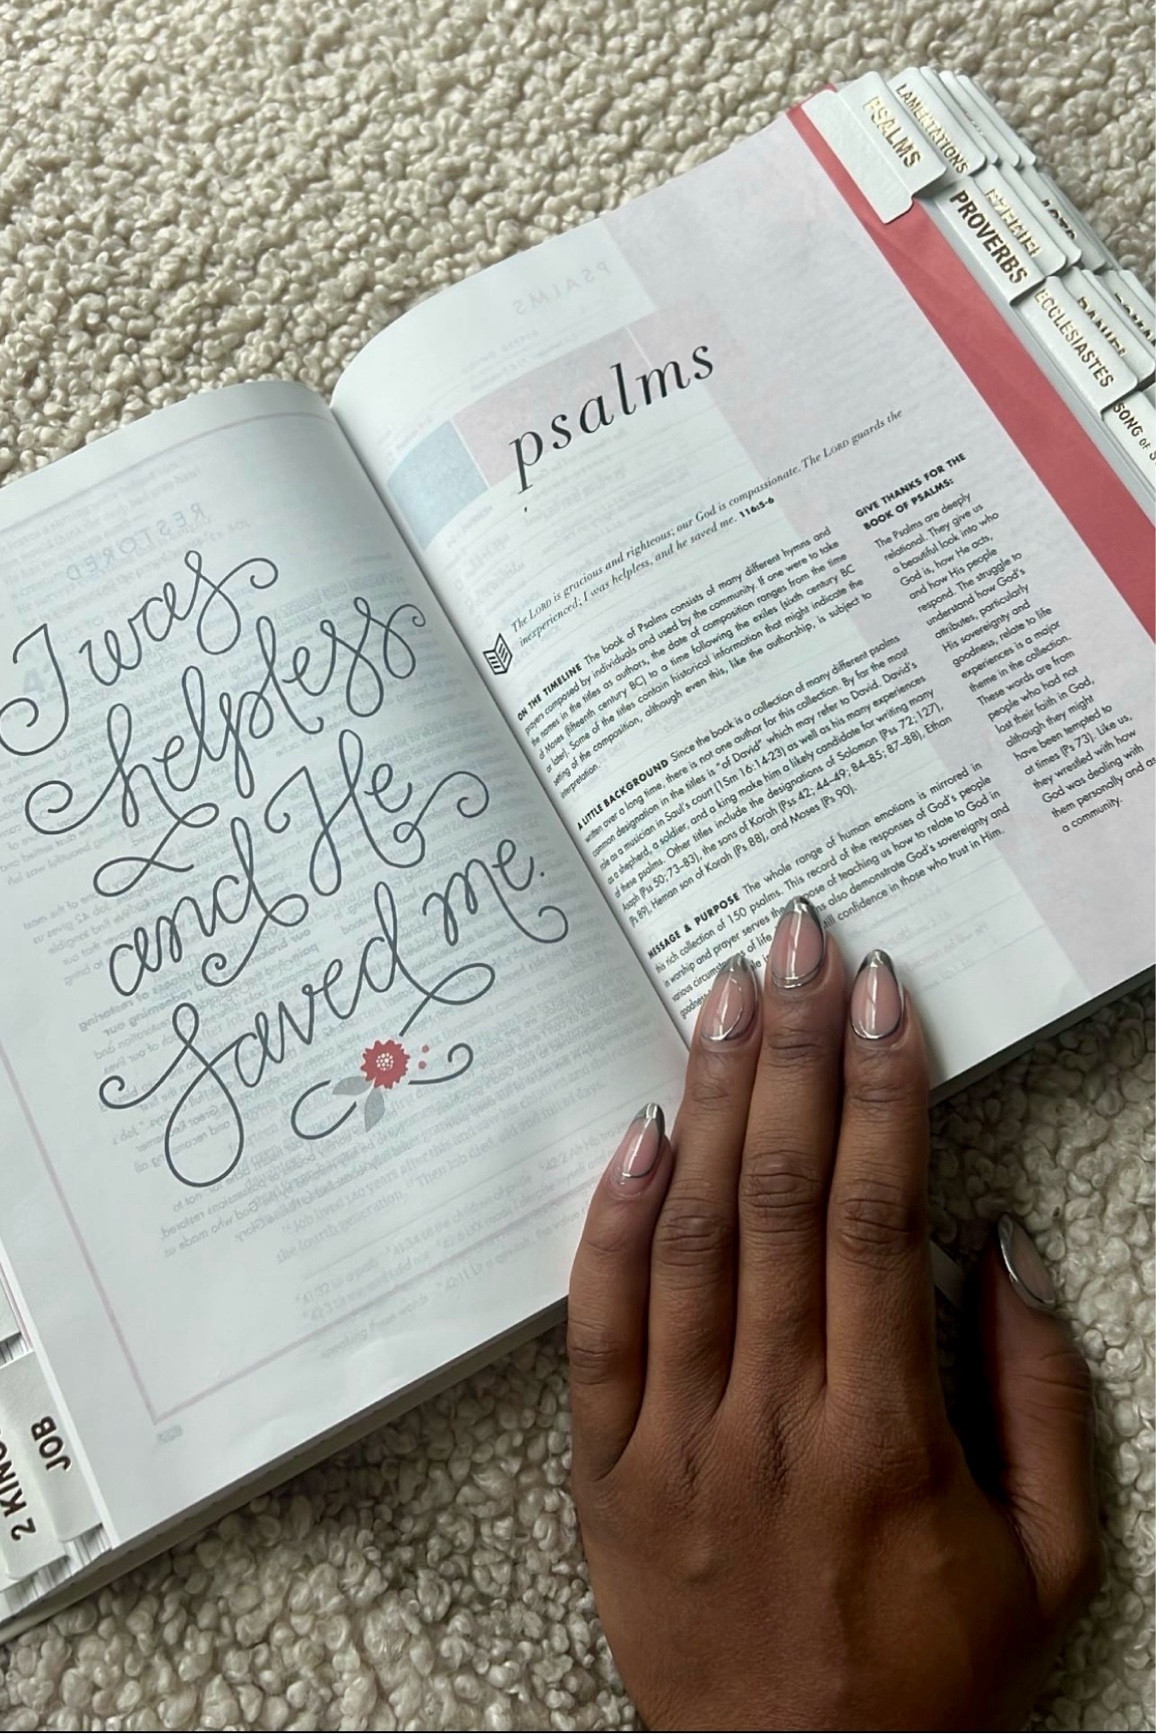 I was
helpless
and He
saved me.
JOB
2 KIN
psalms
The LORD is gracious and righteous; our God is compassionate. The LORD guards the
inexperienced; I was helpless, and he saved me. 116:5-6
ON THE TIMELINE The book of Psalms consists of many different hymns and
prayers composed by individuals and used by the community. If one were to take
the names in the titles as authors, the date of composition ranges from the time
of Moses (fifteenth century BC) to a time following the exiles (sixth century BC
or later). Some of the titles contain historical information that might indicate the
setting of the composition, although even this, like the authorship, is subject to
interpretation.
A LITTLE BACKGROUND Since the book is a collection of many different psalms
written over a long time, there is not one author for this collection. By far the most
common designation in the titles is "of David" which may refer to David. David's
role as a musician in Saul's court (1Sm 16:14-23) as well as his many experiences
as a shepherd, a soldier, and a king make him a likely candidate for writing many
of these psalms. Other titles include the designations of Solomon (Pss 72; 127),
Asaph (Pss 50; 73–83), the sons of Korah (Pss 42; 44–49; 84–85; 87–88), Ethan
(Ps 89), Heman son of Korah (Ps 88), and Moses (Ps 90).
MESSAGE & PURPOSE The whole range of human emotions is mirrored in
this rich collection of 150 psalms. This record of the responses of God's people
in worship and prayer serves the of teaching us how to relate to God in
various of life also demonstrate God's sovereignty and
goodness confidence in those who trust in Him.
GIVE THANKS FOR THE
BOOK OF PSALMS:
The Psalms are deeply
relational. They give us
a beautiful look into who
God is, how He acts,
and how His people
respond. The struggle to
understand how God's
attributes, particularly
His sovereignty and
goodness, relate to life
experiences is a major
theme in the collection.
These words are from
people who had not
lost their faith in God,
although they might
have been tempted to
at times (Ps 73). Like us,
they wrestled with how
God was dealing with
them personally and as
a community.
PSALMS
LAMENTATIONS
PROVERBS
EZEKIEL
ACTS
ECCLESIASTES
DANIEL
SONG OF S